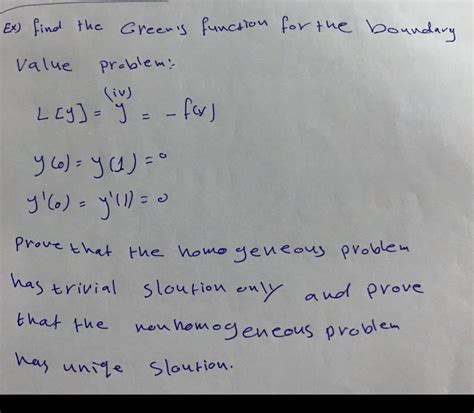 Ex) find the Green's function for the boundary
Value problem:-
L[y] = y^(iv) = - f(x)
y(0) = y(1) = 0
y'(0) = y'(1) = 0
Prove that the homogeneous problem
has trivial sloution only and prove
that the nonhomogeneous problem
has uniqe sloution.